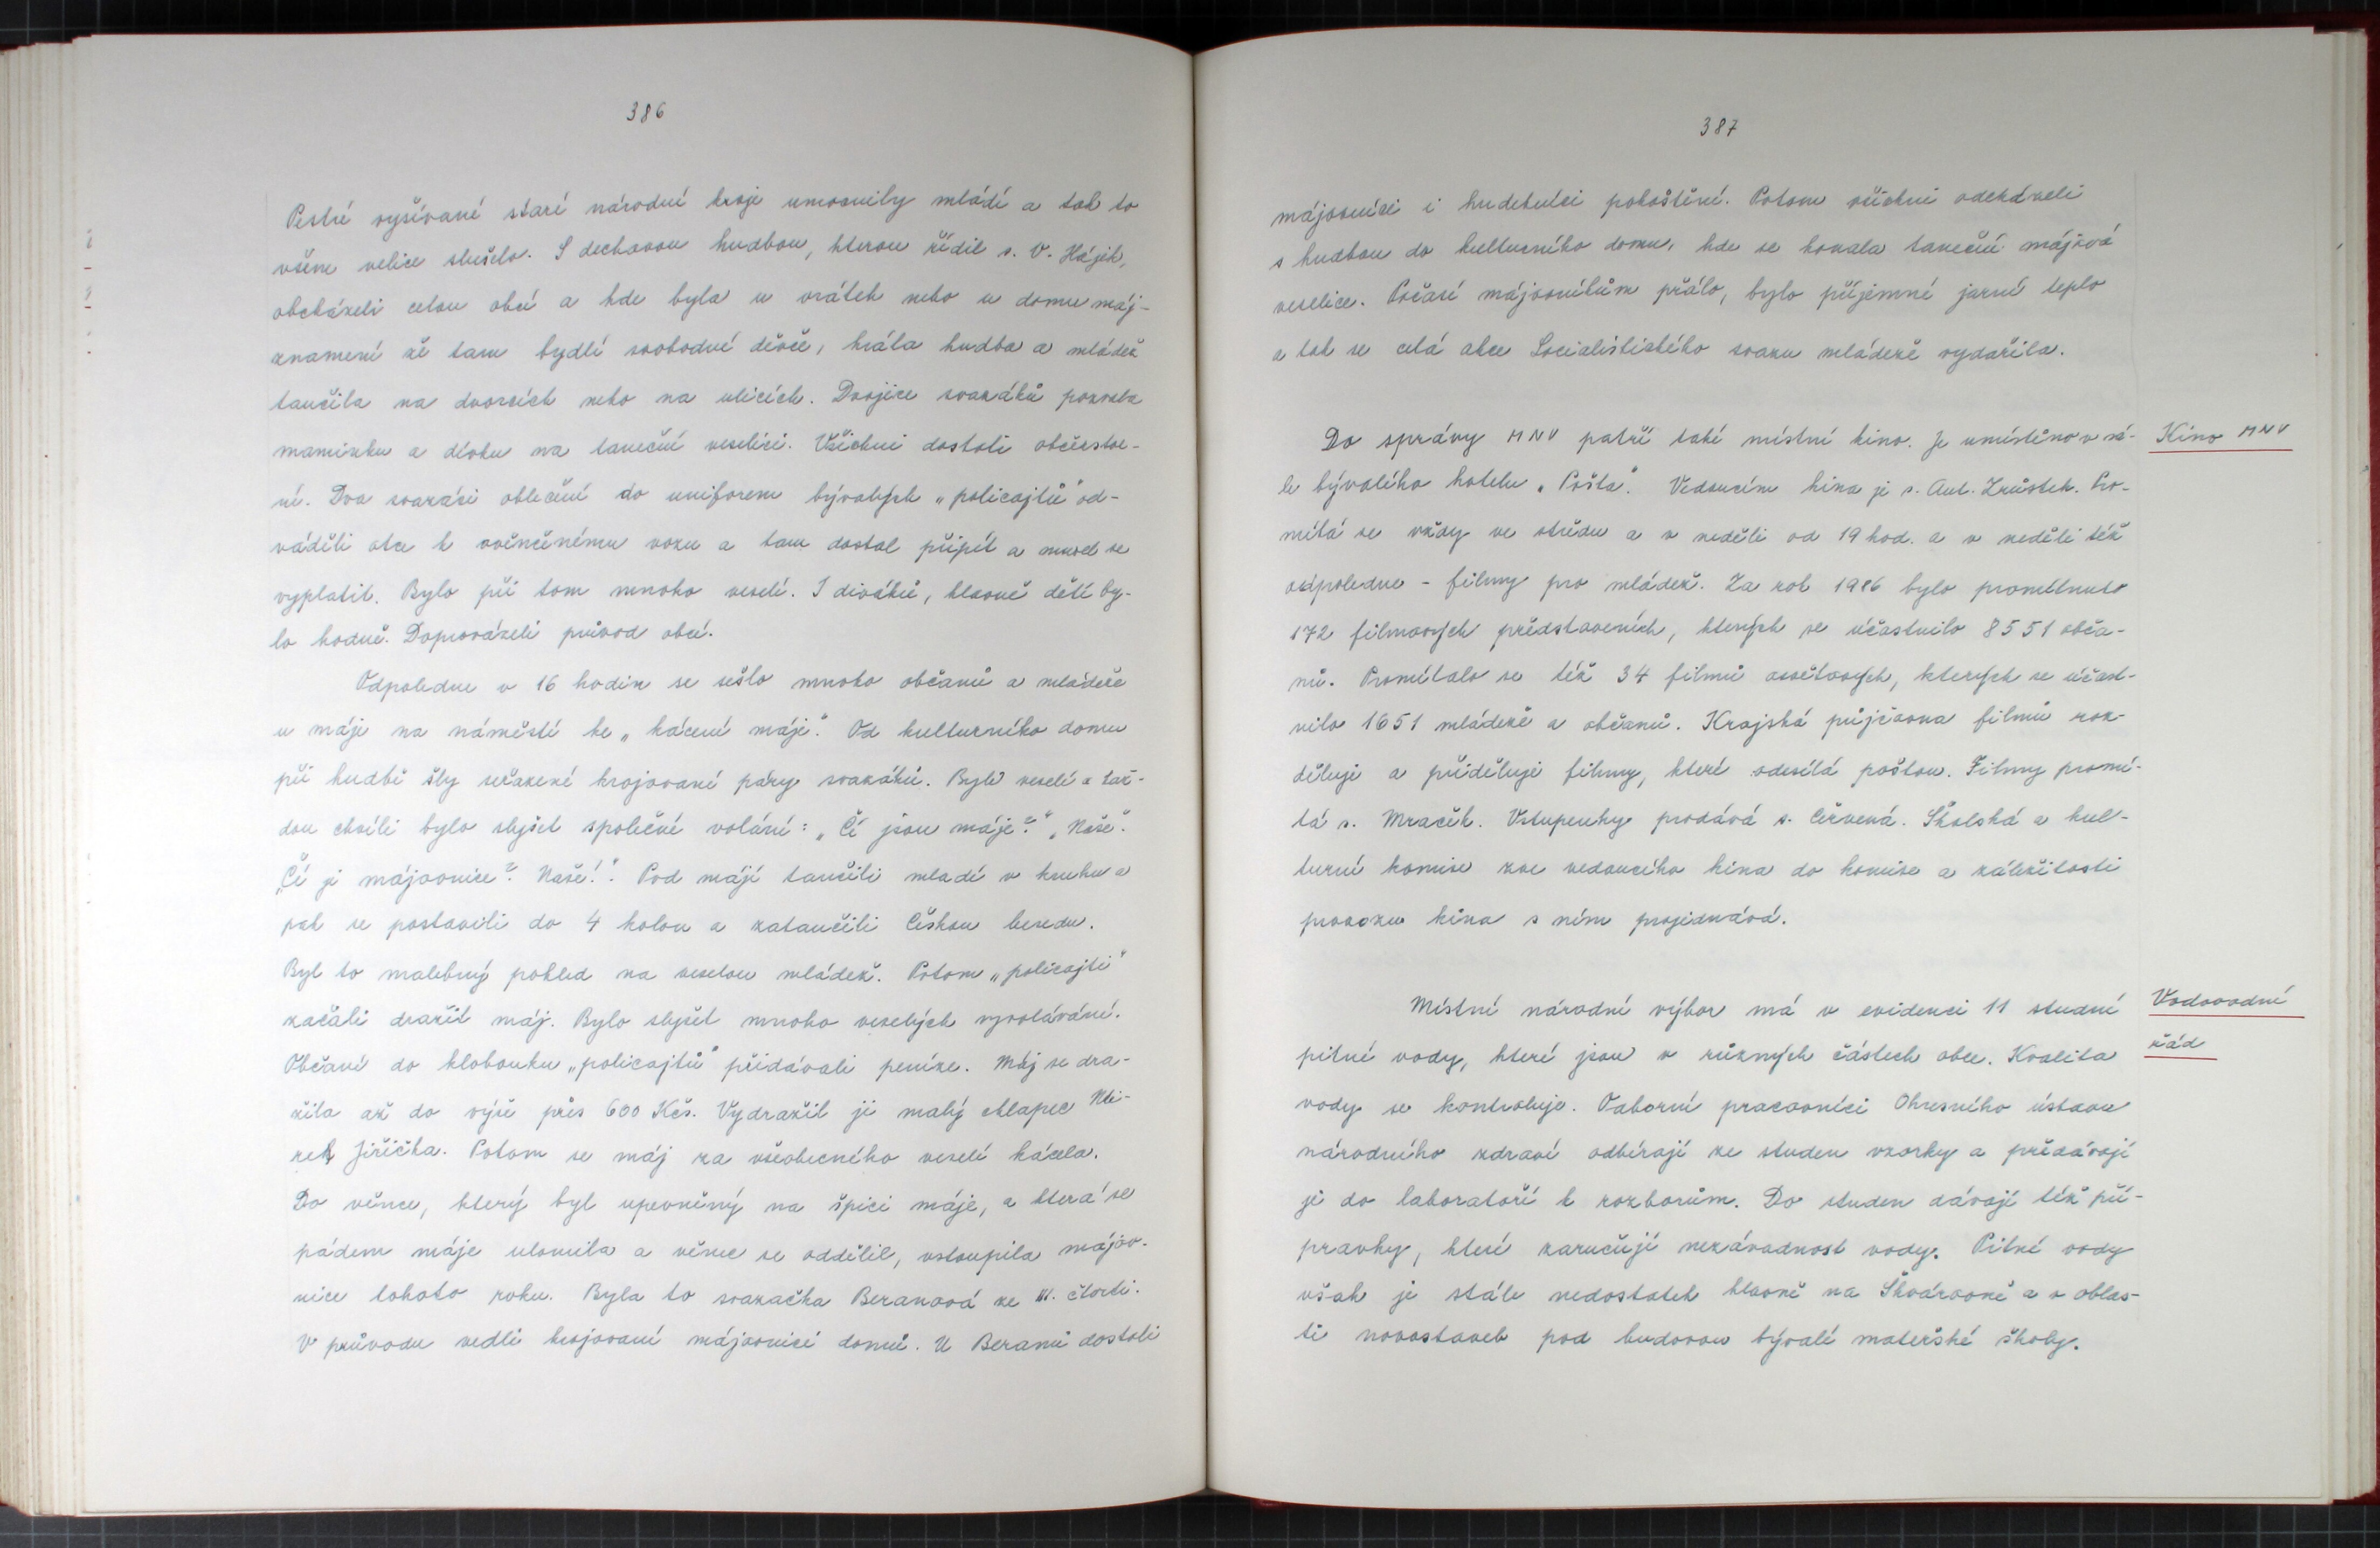 386
Pestré vyšívané staré národní kroje umocnily mládí a tak to
všem velice slušelo. S dechovou hudbou, kterou řídil s. V. Hájek,
obcházeli celou obcí a kde byla u vrátek nebo u domu máj-
znamení že tam bydlí svobodné děvče, hrála hudba a mládež
tančila na dvorcích nebo na ulicích. Dvojice svazáků pozvala
maminku a dívku na taneční veselici. Všichni dostali občerstve-
ní. Dva svazáci oblečení do uniforem bývalých „policajtů" od-
váděli otce k ověnčenému vozu a tam dostal připít a musel se
vyplatit. Bylo při tom mnoho veselí. I diváků, hlavně dětí by-
lo hodně. Doprovázeli průvod obcí.
Odpoledne v 16 hodin se sešlo mnoho občanů a mládeže
u máje na náměstí ke „kácení máje". Od kulturního domu
při hudbě šly seřazené krojované páry svazáků. Bylo veselé a kaž-
dou chvíli bylo slyšet společné volání: „Čí jsou máje?" „Naše".
„Čí je májovnice? Naše!". Pod májí tančili mladí v kruhu a
pak se postavili do 4 kolou a zatančili Českou besedu.
Byl to malebný pohled na veselou mládež. Potom „policajti"
začali dražit máj. Bylo slyšet mnoho veselých vyvolávání.
Občané do klobouku „policajtů" přidávali peníze. Máj se dra-
žila až do výše přes 600 Kčs. Vydražil ji malý chlapec Mi-
rek Jiřička. Potom se máj za všeobecného veselí kácela.
Do věnce, který byl upevněný na špici máje, a která se
pádem máje ulomila a věnec se oddělil, vstoupila májov-
nice tohoto roku. Byla to svazačka Beranová ze III. čtvrti.
V průvodu vedli krojovaní májovnici domů. U Beranů dostali
387
májovníci i hudebníci pohoštění. Potom všichni odcházeli
s hudbou do kulturního domu, kde se konala taneční májová
veselice. Počasí májovníkům přálo, bylo příjemné jarní teplo
a tak se celá akce Socialistického svazu mládeže vydařila.
Kino MNV
Do správy MNV patří také místní kino. Je umístěno v sá-
le bývalého hotelu „Pošta". Vedoucím kina je s. Ant. Zrůstek. Pro-
mítá se vždy ve středu a v neděli od 19 hod. a v neděli též
odpoledne - filmy pro mládež. Za rok 1986 bylo promítnuto
172 filmových představeních, kterých se účastnilo 8551 obča-
nů. Promítalo se též 34 filmů osvětových, kterých se účast-
nilo 1651 mládeže a občanů. Krajská půjčovna filmů roz-
děluje a přiděluje filmy, které odesílá poštou. Filmy promí-
tá s. Mraček. Vstupenky prodává s. Červená. Školská a kul-
turní komise zve vedoucího kina do komise a záležitosti
provozu kina s ním projednává.
Vodovodní
řád
Místní národní výbor má v evidenci 11 studní
pitné vody, které jsou v různých částech obce. Kvalita
vody se kontroluje. Odborní pracovníci Okresního ústavu
národního zdraví odbírají ze studen vzorky a předávají
je do laboratoří k rozborům. Do studen dávají též pří-
pravky, které zaručují nezávadnost vody. Pitné vody
však je stále nedostatek hlavně na Škvárovně a v oblas-
ti novostaveb pod budovou bývalé mateřské školy.